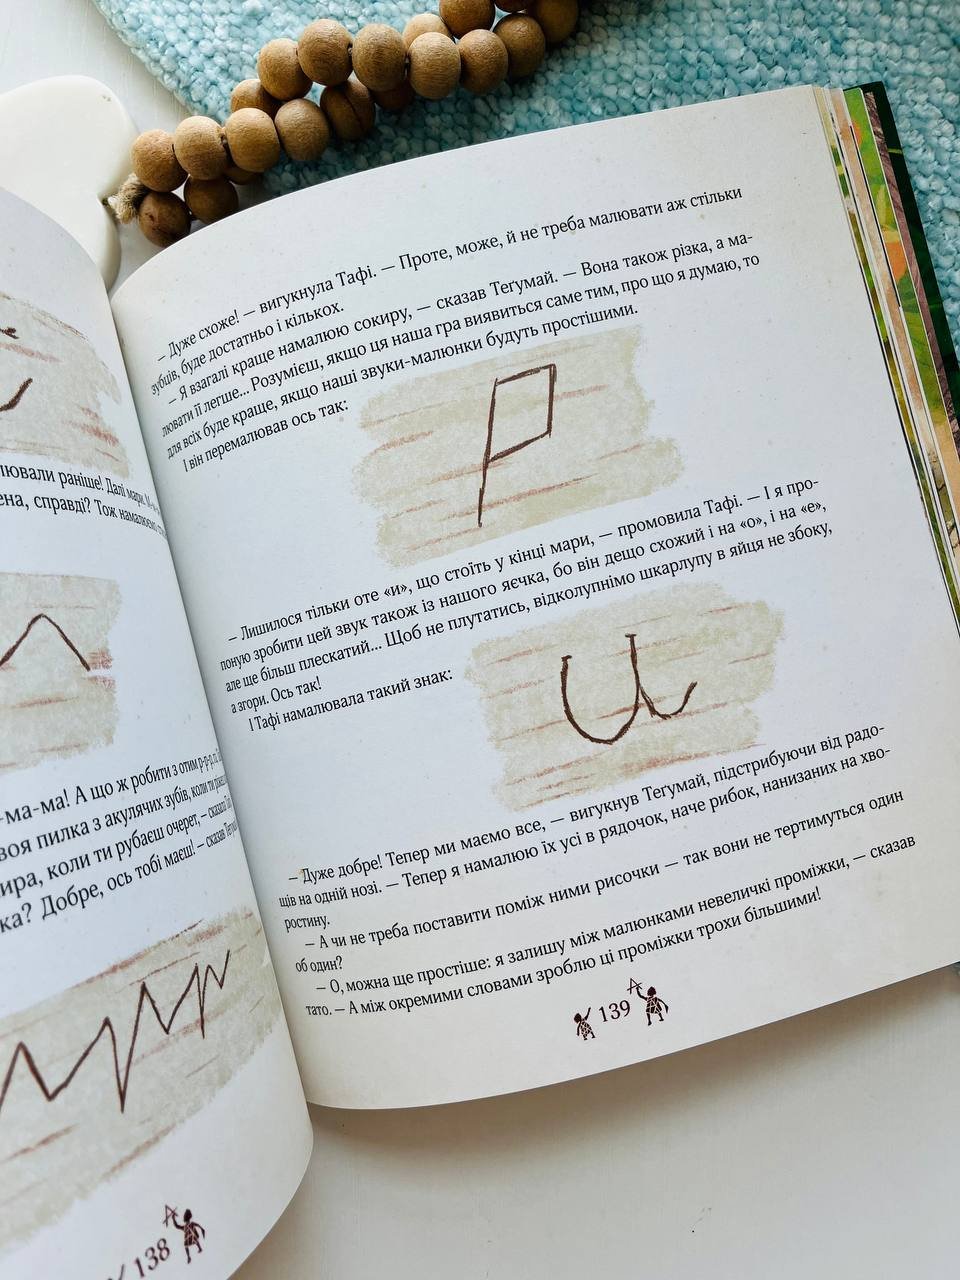 ловали раніше! Далі мари. М-м-
ена, справді? Тож намалюємо
-ма-ма! А що ж робити з отим р-р-р,
воя пилка з акулячих зубів, коли ти
ира, коли ти рубаєш очерет, — сказала
ка? Добре, ось тобі маєш! — сказав
138
— Дуже схоже! — вигукнула Тафі. — Проте, може, й не треба малювати аж стільки
зубців, буде достатньо і кількох.
— Я взагалі краще намалюю сокиру, — сказав Теґумай. — Вона також різка, а ма-
лювати її легше... Розумієш, якщо ця наша гра виявиться саме тим, про що я думаю, то
для всіх буде краще, якщо наші звуки-малюнки будуть простішими.
І він перемалював ось так:
Р
— Лишилося тільки оте «и», що стоїть у кінці мари, — промовила Тафі. — І я про-
поную зробити цей звук також із нашого яєчка, бо він дещо схожий і на «о», і на «е»,
але ще більш плескатий... Щоб не плутатись, відколупнімо шкарлупу в яйця не збоку,
а згори. Ось так!
І Тафі намалювала такий знак:
и
— Дуже добре! Тепер ми маємо все, — вигукнув Теґумай, підстрибуючи від радо-
щів на одній нозі. — Тепер я намалюю їх усі в рядочок, наче рибок, нанизаних на хво-
ростину.
— А чи не треба поставити поміж ними рисочки — так вони не тертимуться один
об один?
— О, можна ще простіше: я залишу між малюнками невеличкі проміжки, — сказав
тато. — А між окремими словами зроблю ці проміжки трохи більшими!
139